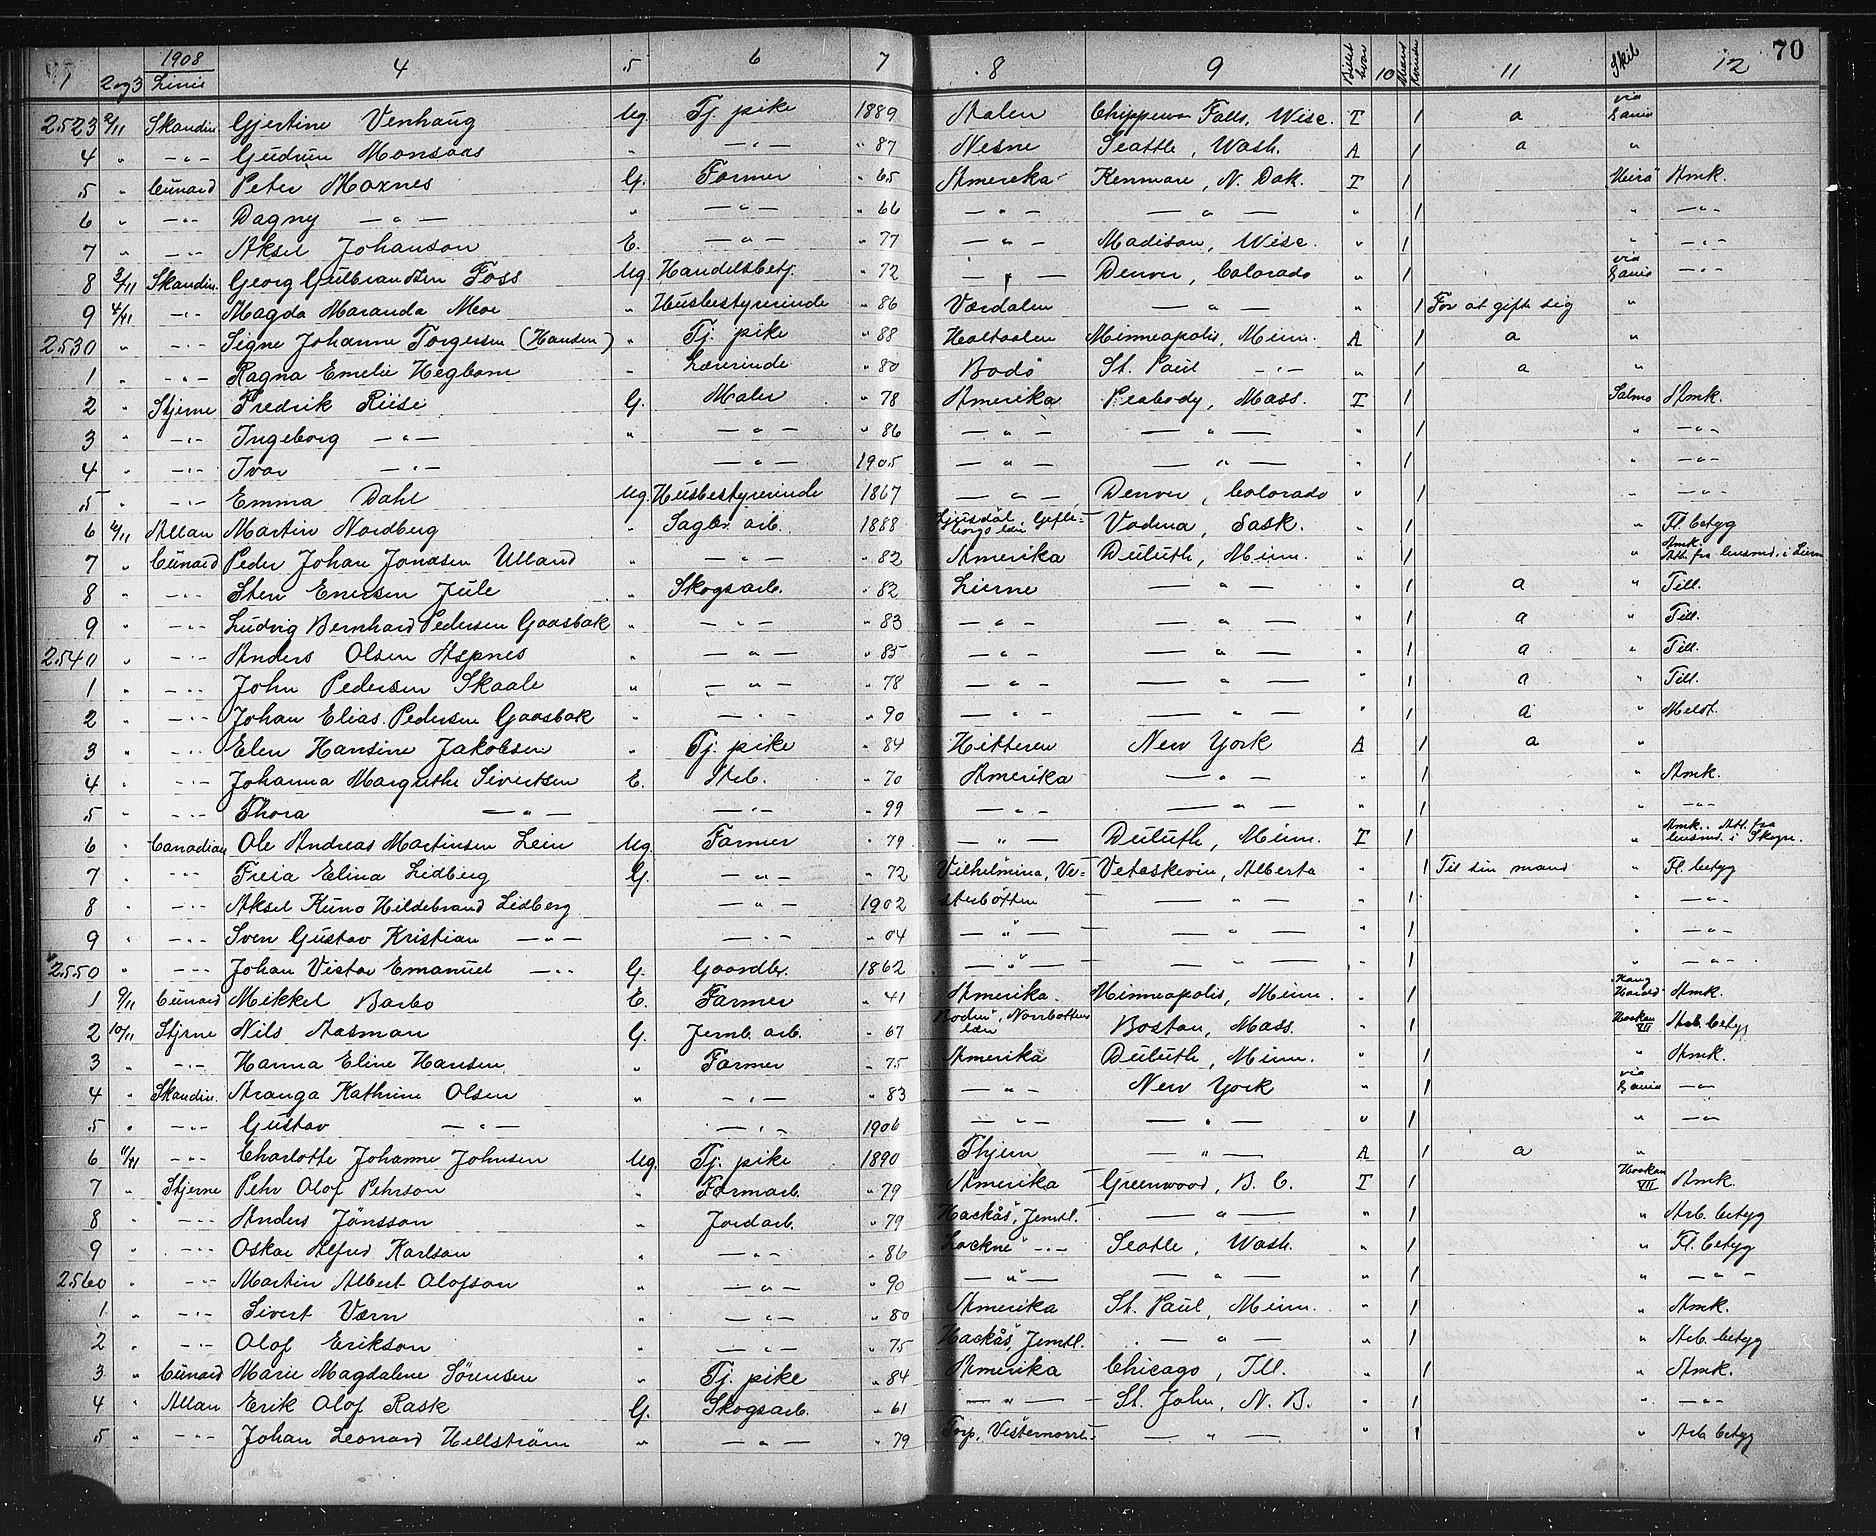 70
1 2 og 3 1908 Linie 4 5 6 7 8 9 Billet hvor 10 Mand Kvinde 11 Skib 12
2523 2/11 Skandin Gjertine Venhaug Ug. Tj. pike 1889 Aalen Chippewa Falls, Wisc. T 1 a via Danio
4 " -"- Gudrun Monsaas " -"- " 87 Nesne Seattle, Wash. A 1 a "
5 " Cunard Peter Moxnes G. Farmer " 65 Amerika Kenmare, N. Dak. T 1 Amk.
6 " -"- Dagny -"- " -"- " 66 -"- -"- " 1 " -"-
7 " -"- Aksel Johanson E. -"- " 77 -"- Madison, Wisc. " 1 " -"-
8 3/11 Skandin. Georg Gulbrandsen Foss Ug. Handelsbetj. " 72 -"- Denver, Colorado " 1 via -"-
9 4/11 -"- Magda Maranda Moe " Husbestyrerinde " 86 Værdalen -"- " 1 For at gifte sig "
2530 " -"- Signe Johanne Torgersen (Hansen) " Tj. pike " 88 Holtaalen Minneapolis, Minn. A 1 a "
1 " -"- Ragna Emelie Hegbom " Lærerinde " 80 Bodö St. Paul -"- " 1 a "
2 " Stjerne Fredrik Riise G. Maler " 78 Amerika Peabody, Mass. T 1 Salmo Amk.
3 " -"- Ingeborg -"- " -"- " 86 -"- -"- " 1 " -"-
4 " -"- Ivar -"- -"- 1905 -"- -"- " 1 " -"-
5 " -"- Emma Dahl Ug. Husbestyrerinde 1867 -"- Denver, Colorado " 1 " -"-
6 6/11 Allan Martin Nordberg " Sagbr. arb. 1888 Ljusdal, Gefleborgs län Vadena, Sask. " 1 " Fl. betyg
7 " Cunard Peder Johan Jonasen Ulland " -"- " 82 Amerika Duluth, Minn. " 1 " Amk. Att. fra lensmd. i Lierne
8 " -"- Sten Enersen Jule " Skogsarb. " 82 Lierne -"- " 1 a " Till.
9 " -"- Ludvig Bernhard Pedersen Gaasbak " -"- " 83 -"- -"- " 1 a " Till.
2540 " -"- Anders Olsen Aspnes " -"- " 85 -"- -"- " 1 a " Till.
1 " -"- John Pedersen Skaale " -"- " 78 -"- -"- " 1 a " Till.
2 " -"- Johan Elias Pedersen Gaasbak " -"- " 90 -"- -"- " 1 a " Meldt.
3 " -"- Elen Hansine Jakobsen " Tj. pike " 84 Hitteren New York A 1 a "
4 " -"- Johanna Margrethe Sivertsen E. Arb. " 70 Amerika -"- " 1 " Amk.
5 " -"- Thora -"- -"- " 99 -"- -"- " 1 " -"-
6 " Canadian Ole Andreas Martinsen Lein Ug. Farmer " 79 -"- Duluth, Minn. T 1 " Amk. Att. fra lensmd. i Skogn.
7 " -"- Freia Elina Lidberg G. -"- " 72 Vilhelmina, Vesterbotten Vetaskevin, Alberta " 1 Til sin mand " Fl. betyg
8 " -"- Aksel Kuno Hildebrand Lidberg -"- 1902 -"- " 1 " -"-
9 " -"- Sven Gustav Kristian -"- -"- " 04 -"- -"- " 1 " -"-
2550 " -"- Johan Victor Emanuel -"- G. Gaardbr. 1862 -"- -"- " 1 " -"-
1 9/11 Cunard Mikkel Barbo E. Farmer " 41 Amerika. Minneapolis, Minn. " 1 Kong Harald Amk.
2 10/11 Stjerne Nils Aasman G. Jernb. arb. " 67 Boden, Norrbotten län Boston, Mass. " 1 Haakon VII Arb. betyg
3 " -"- Hanna Eline Hansen " Farmer " 75 Amerika Duluth, Minn. " 1 " Amk.
4 " Skandin. Aranga Kathrine Olsen " -"- " 83 -"- New York " 1 via Danio -"-
5 " -"- Gustav -"- -"- 1906 -"- -"- " 1 " -"-
6 11/11 -"- Charlotte Johanne Johnsen Ug. Tj. pike 1890 Thjem -"- A 1 a "
7 " Stjerne Pehr Olof Pehrson " Farmarb. " 79 Amerika Greenwood, B. C. T 1 Haakon VII Amk.
8 " -"- Anders Jönsson " Jordarb. " 79 Hackås, Jemtl. -"- " 1 " Arb. betyg
9 " -"- Oskar Alfred Karlson " -"- " 86 Lockne -"- Seatle, Wash. " 1 " Fl. betyg
2560 " -"- Martin Albert Olofson " -"- " 90 -"- -"- " 1 " -"-
1 " -"- Sivert Værn " -"- " 80 Amerika St. Paul, Minn. " 1 " Amk.
2 " -"- Olof Erikson " -"- " 75 Hackås, Jemtl. -"- " 1 " Arb. betyg
3 " Cunard Marie Magdalene Sörensen " Tj. pike " 84 Amerika Chicago, Ill. " 1 " Amk.
4 " Allan Erik Olof Rask G. Skogsarb. " 61 -"- St. John, N. B. " 1 " -"-
5 " -"- Johan Leonard Hellström " -"- " 79 Torp, Vesternorrl. -"- " 1 " Arb. betyg